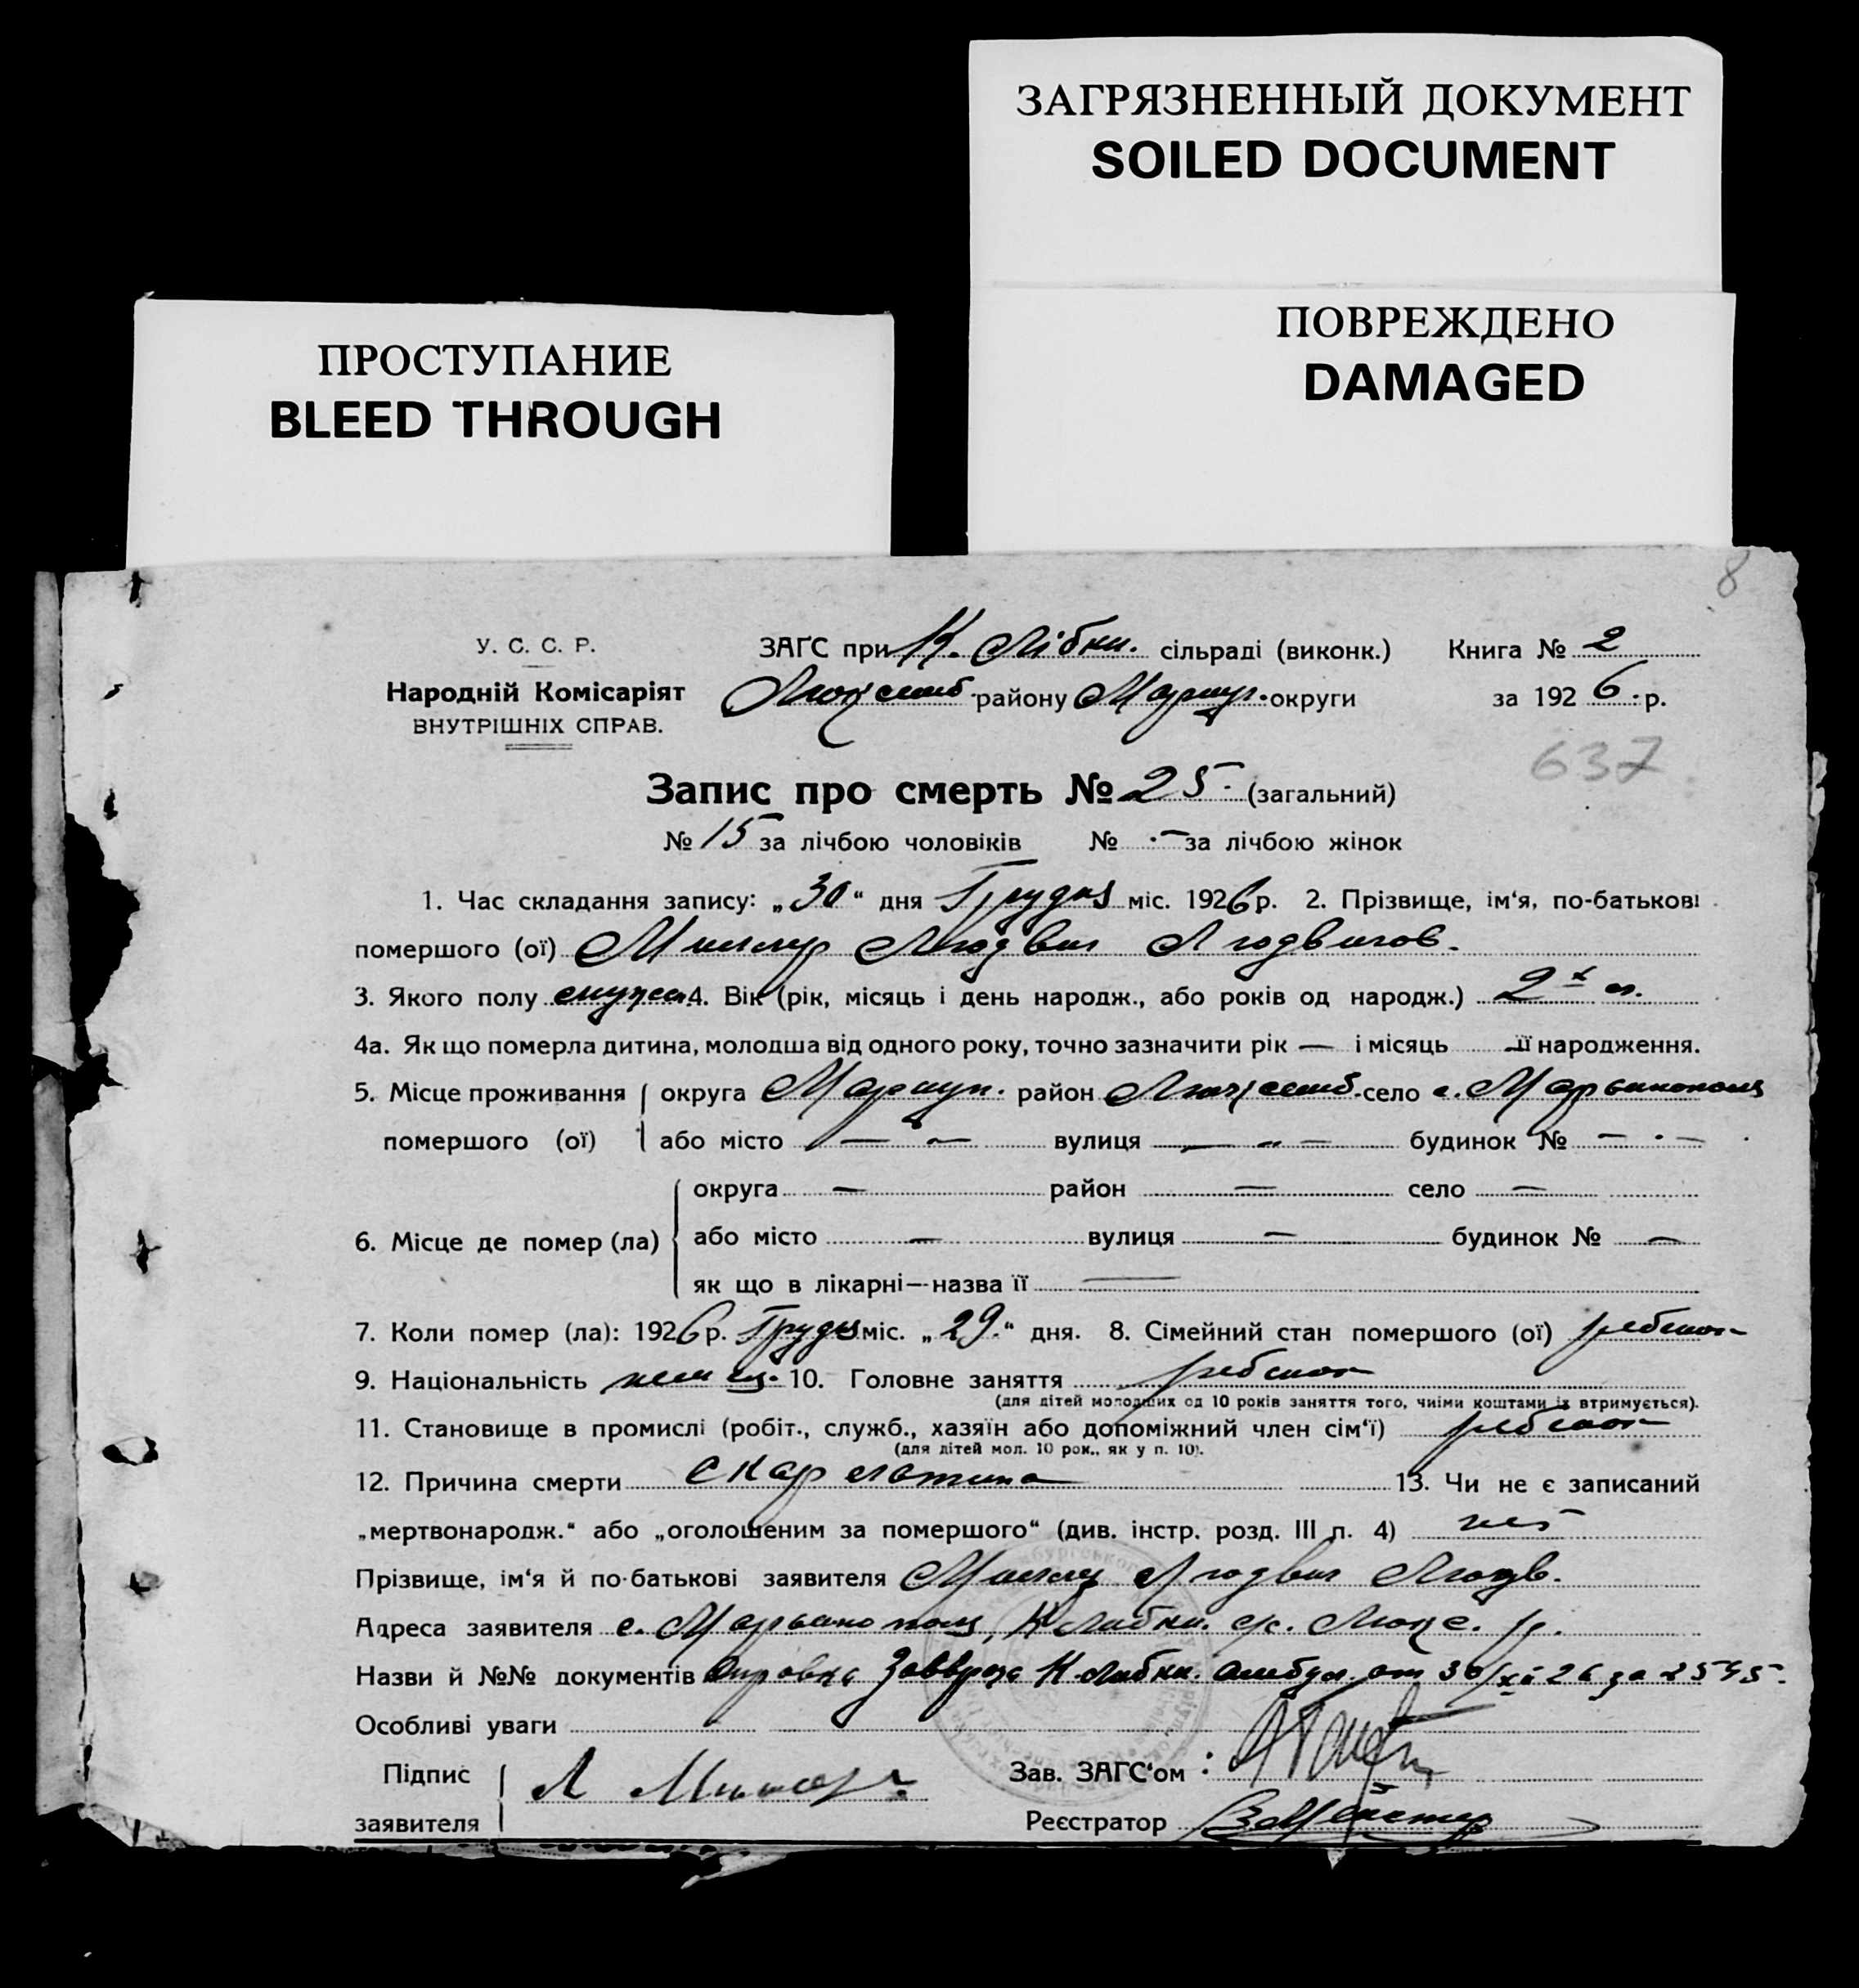 ЗАГРЯЗНЕННЫЙ ДОКУМЕНТ
SOILED DOCUMENT
ПОВРЕЖДЕНО
DAMAGED
ПРОСТУПАНИЕ
BLEED THROUGH
8
У. С. С. Р.
Народній Комісаріят
ВНУТРІШНІХ СПРАВ.
ЗАГС при К. Лібкн. сільраді (виконк.)
Люксемб. району Маріуп. округи
Книга № 2
за 1926 р.
637
Запис про смерть № 25 (загальний)
№ 15 за лічбою чоловіків № — за лічбою жінок
1. Час складання запису: „30“ дня Грудня міс. 1926 р. 2. Прізвище, ім‘я, по-батькові
помершого (ої) Миллер Людвиг Людвигов.
3. Якого полу 4. Вік (рік, місяць і день народж., або років од народж.) 2х л.
4а. Як що померла дитина, молодша від одного року, точно зазначити рік — і місяць — її народження.
5. Місце проживання помершого (ої) округа Маріуп. район Люксемб. село с. Марьинополь
або місто — „ — вулиця — „ — будинок № — „ —
6. Місце де помер (ла) округа — район — село —
або місто — вулиця — будинок № —
як що в лікарні—назва її —
7. Коли помер (ла): 1926 р. Грудня міс. „29.“ дня. 8. Сімейний стан помершого (ої) ребенок
9. Національність немец. 10. Головне заняття ребенок
(для дітей молодших од 10 років заняття того, чиїми коштами їх втримується).
11. Становище в промислі (робіт., служб., хазяїн або допоміжний член сім‘ї) ребенок
(для дітей мол. 10 рок., як у п. 10).
12. Причина смерти скарлатина 13. Чи не є записаний
„мертвонародж.“ або „оголошеним за помершого“ (див. інстр. розд. III п. 4) ні
Прізвище, ім‘я й по-батькові заявителя Миллер Людвиг Людв.
Адреса заявителя с. К. Либкн. с/с. Люкс. р.
Назви й №№ документів К. Либкн. амбул. от 30/XII 26 за 2545
Особливі уваги
Підпис заявителя Л Миллер
Зав. ЗАГС‘ом
Реєстратор